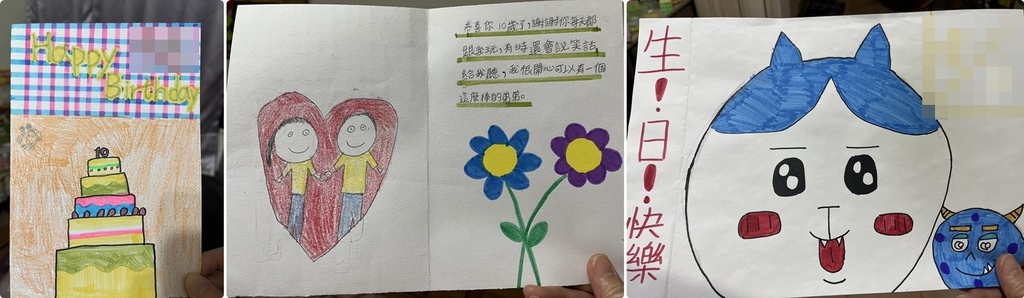 Happy
Birthday
10
恭喜你10歲了，謝謝你每天都
跟我玩，有時還會說笑話
給我聽，我很開心可以有一個
這麼棒的弟弟。
生！日！快樂